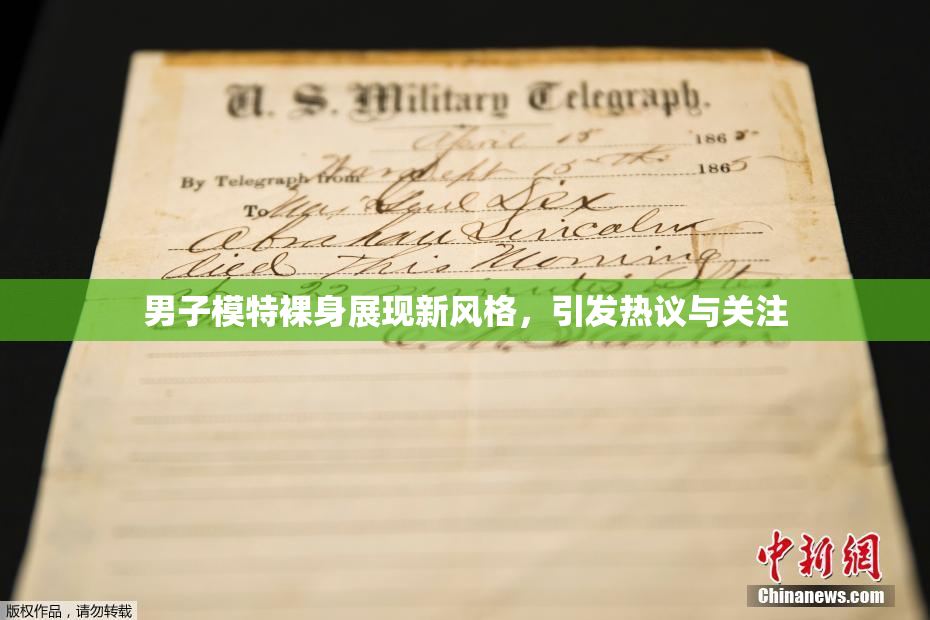 U. S. Military Telegraph.
April 15 1865
By Telegraph from War Dept 15th 1865
To Maj Genl Dix
Abraham Lincoln
died This Morning
22 minutes after
男子模特裸身展现新风格，引发热议与关注
中新網
Chinanews.com
版权作品，请勿转载